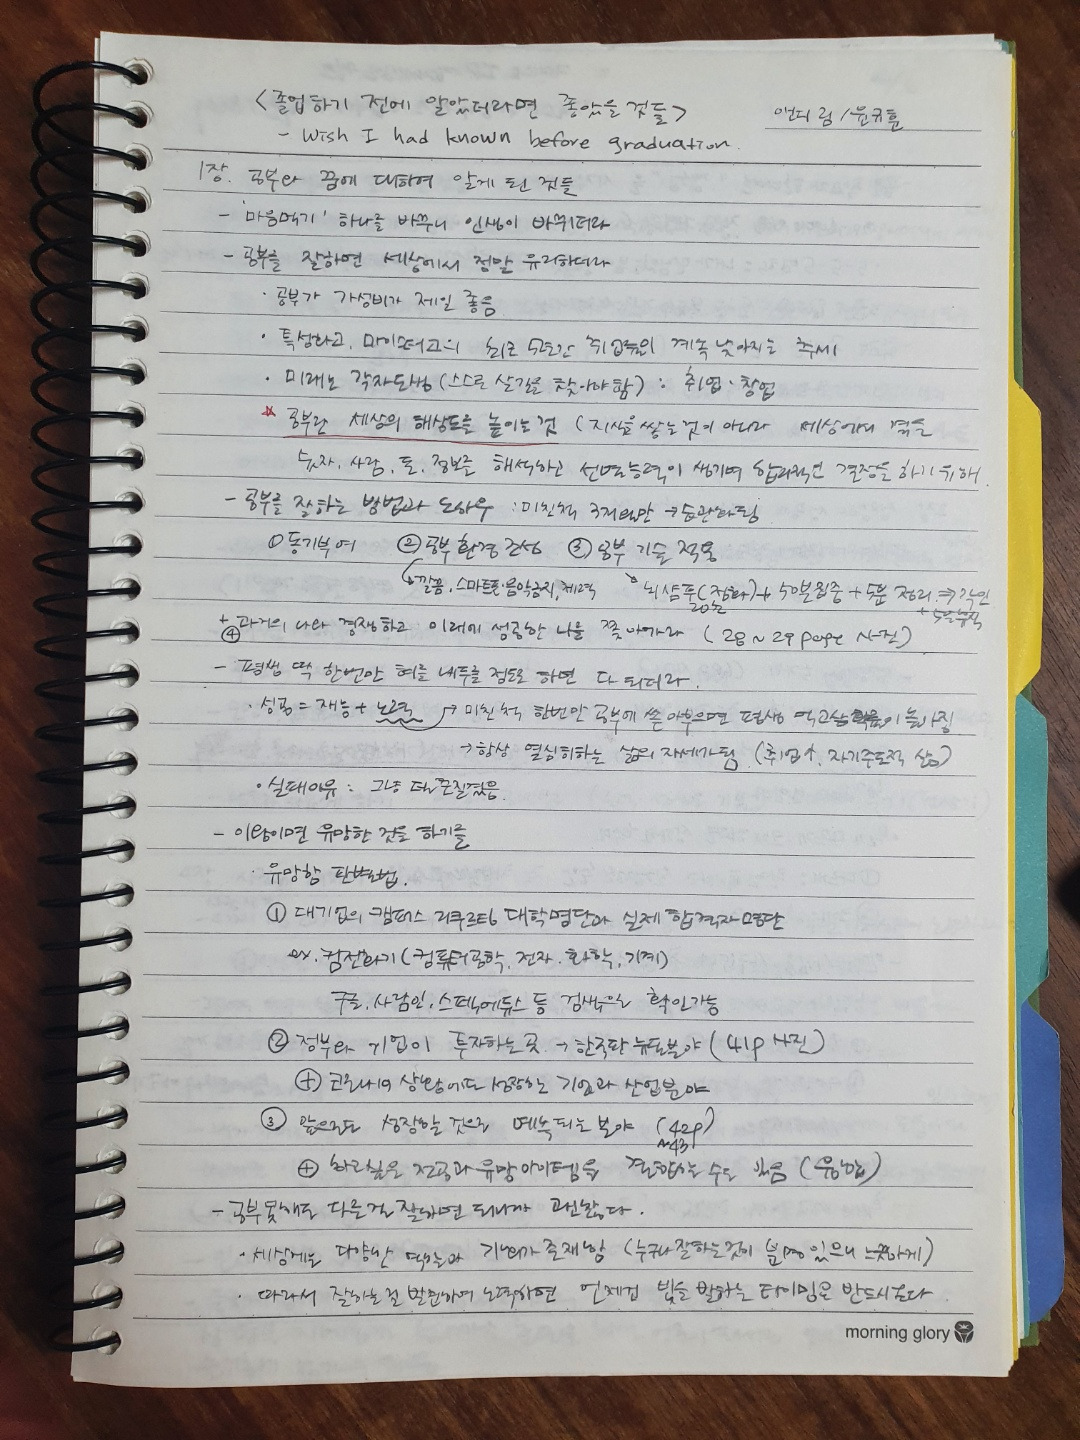 <졸업하기 전에 알았더라면 좋았을 것들> 앤디 림/윤규훈
- Wish I had known before graduation.
1장. 공부와 꿈에 대하여 알게 된 것들
- '마음먹기' 하나를 바꾸니 인생이 바뀌더라
- 공부를 잘하면 세상에서 정말 유리하더라
· 공부가 가성비가 제일 좋음
· 특성화고, 마이스터고의 최근 취업률이 계속 낮아지는 추세
· 미래는 각자도생(스스로 살길을 찾아야함) : 취업·창업
* 공부란 세상의 해상도를 높이는 것 (지식을 쌓는것이 아니라 세상에서 겪는
숫자, 사람, 돈, 정보를 해석하고 선별능력이 생기며 합리적인 결정을 하기 위해.
- 공부를 잘하는 방법과 노하우 : 미친척 3개월만 → 습관화됨
① 동기부여 ② 공부환경 조성 ③ 공부 기술 적용
스마트폰·음악금지, 체력 뇌샴푸( )+ 50분집중 + 5분 정리 ⇒ 각인
20분
+ ④ 과거의 나와 경쟁하고 미래에 성공한 나를 쫓아가라 (28~29 page 사진)
- 평생 딱 한번만 혀를 내두를 정도로 하면 다 되더라.
· 성공 = 재능 + 노력 → 미친 척 한번만 공부에 쏟아부으면 평생 먹고살 확률이 높아짐
→ 항상 열심히하는 삶의 자세가 됨 (취업↑, 자기주도적 삶)
· 실패이유 : 그냥
- 이왕이면 유망한 것을 하기를
· 유망함 판별법.
① 대기업의 캠퍼스 리쿠르팅 대학명단과 실제 합격자 명단
ex. 컴전화기(컴퓨터공학, 전자, 화학, 기계)
구글, 사람인, 스펙업에듀스 등 검색으로 확인가능
② 정부와 기업이 투자하는 곳 → 한국판 뉴딜분야 (41p 사진)
⊕ 코로나19 상황에도 성장하는 기업과 산업분야
③ 앞으로도 성장할 것으로 예측되는 분야 (42p
~43)
⊕ 하고싶은 전공과 유망아이템을 결합하는 수도 있음 (융합)
- 공부못해도 다른걸 잘하면 되니까 괜찮다.
· 세상에는 다양한 역할과 기회가 존재함 (누구나 잘하는것이 분명 있으니 느긋하게)
· 따라서 잘하는걸 발견하여 노력하면 언제건 빛을 발하는 타이밍은 반드시 온다.
morning glory